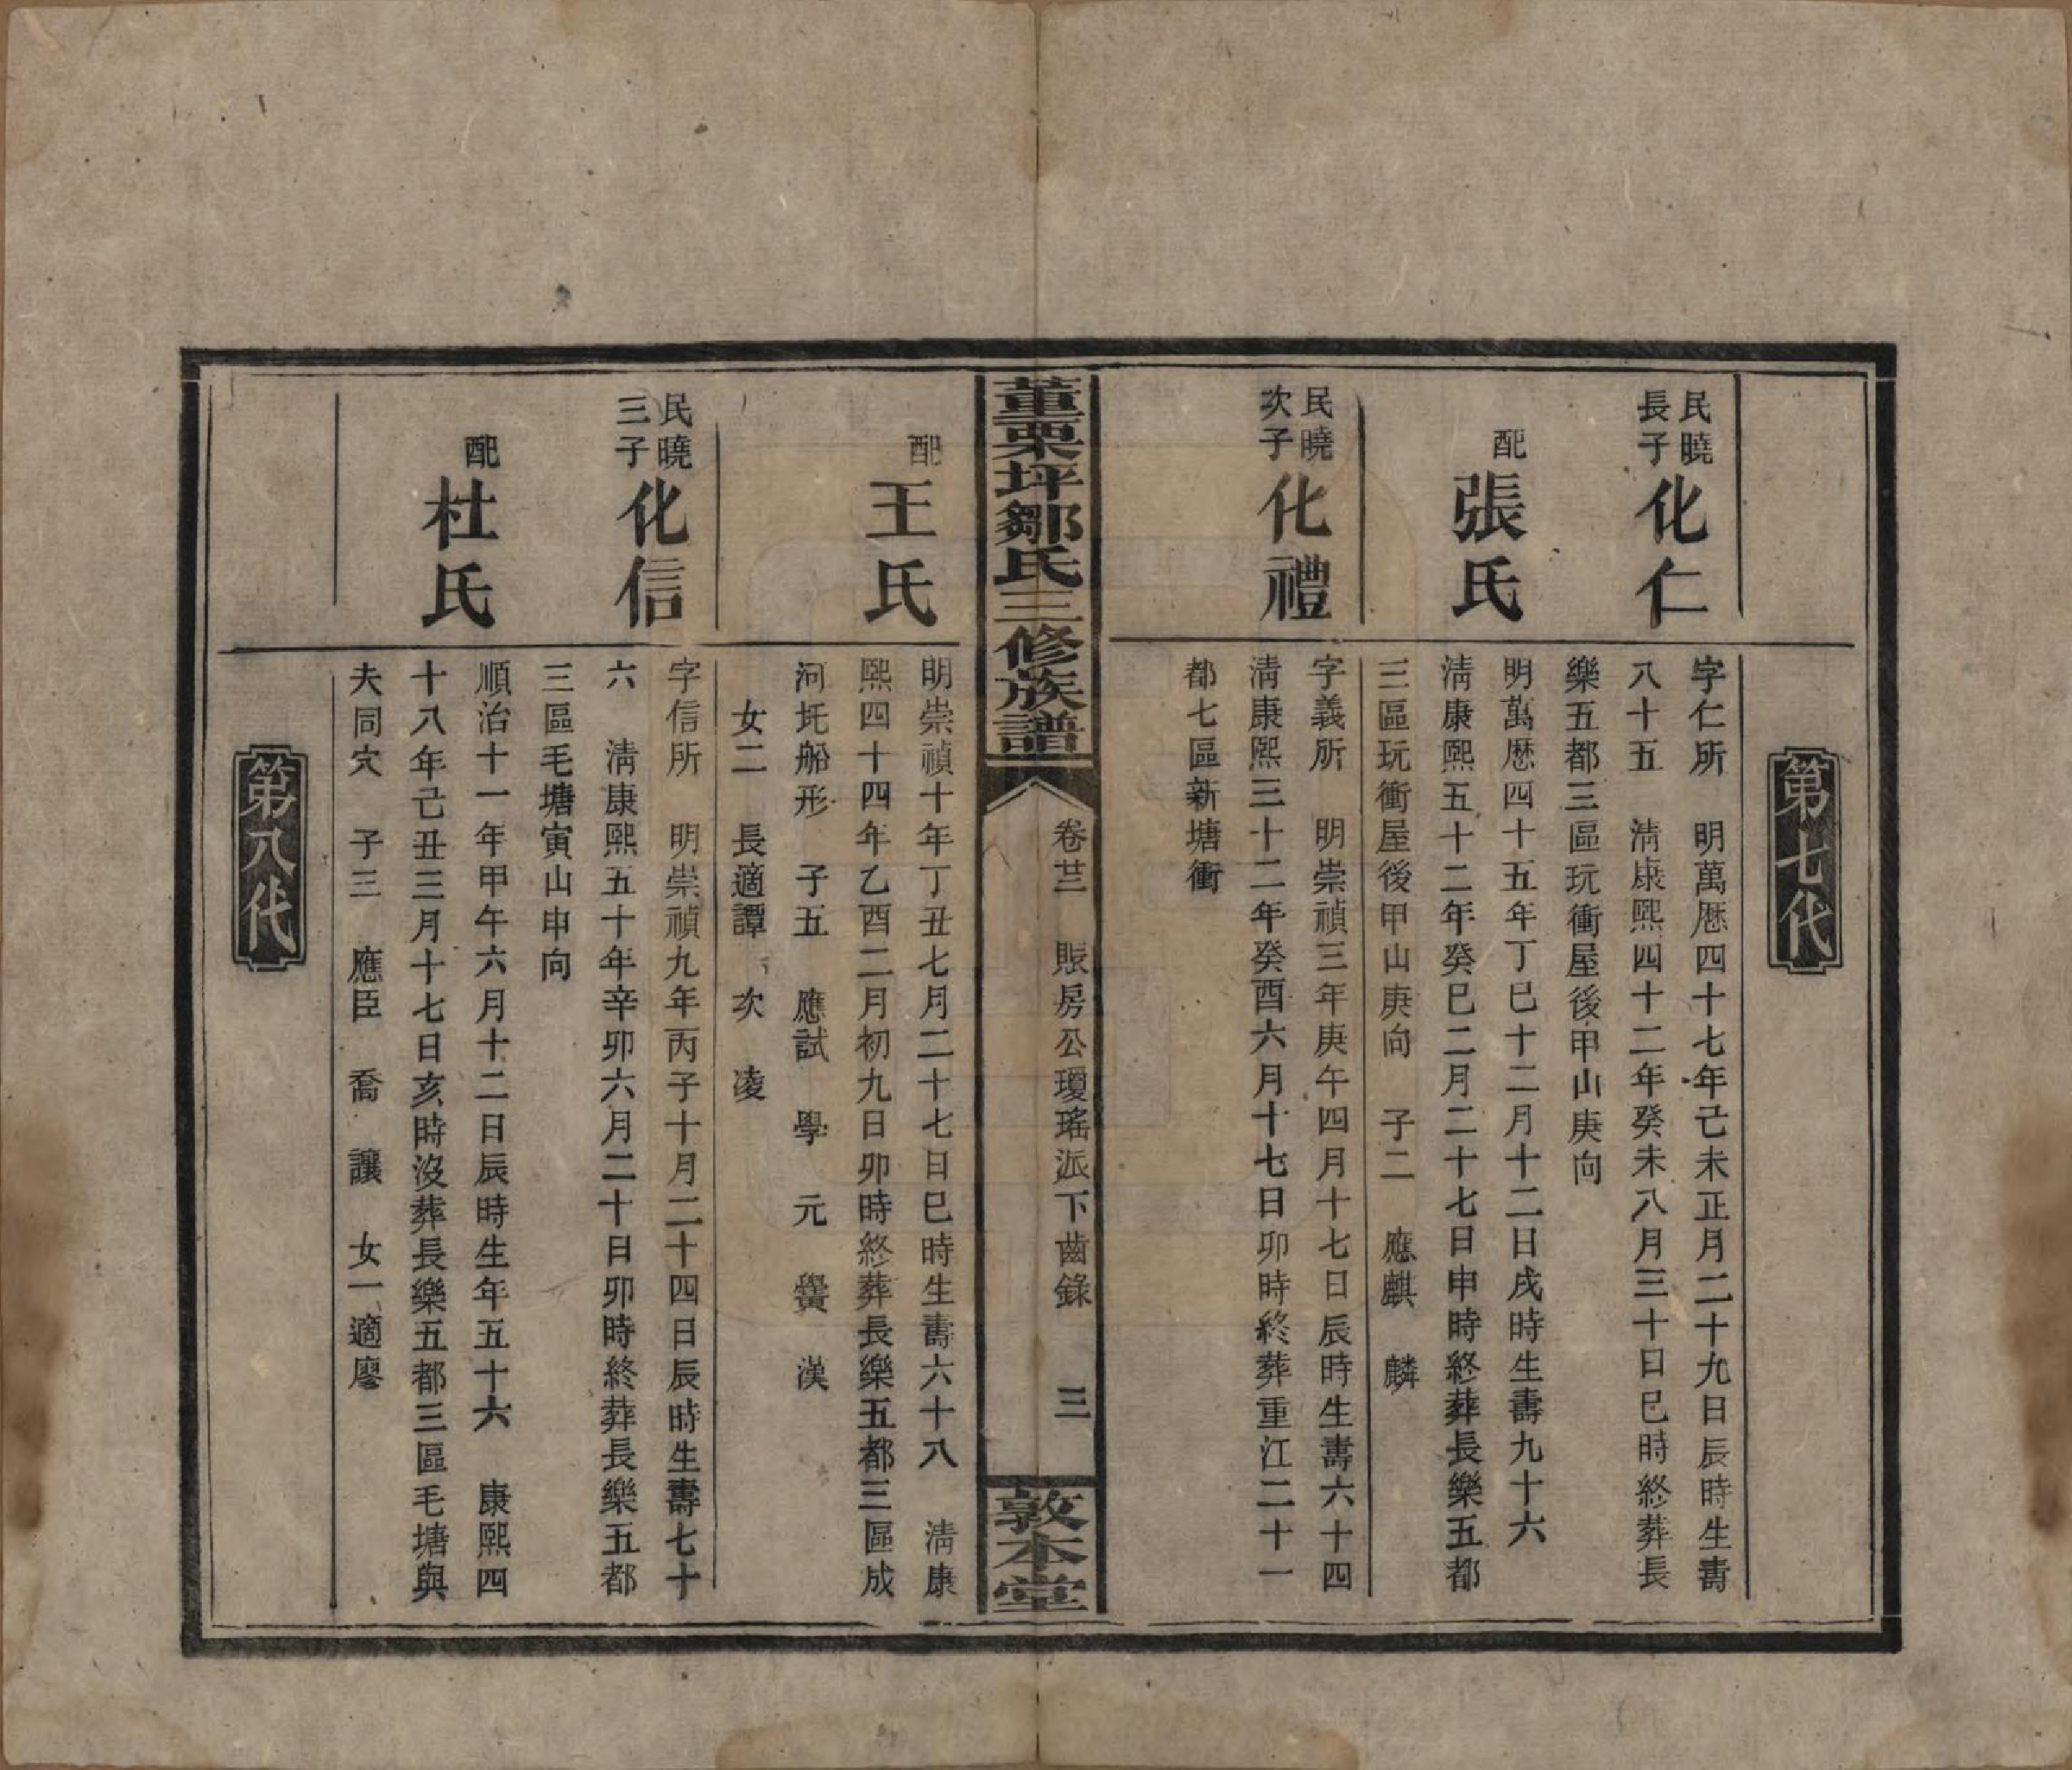 第七代
民曉
長子
化仁
字仁所　明萬厯四十七年己未正月二十九日辰時生壽
八十五　清康熙四十二年癸未八月三十日巳時終葬長
樂五都三區玩衝屋後甲山庚向
配
張氏
明萬厯四十五年丁巳十二月十二日戌時生壽九十六
清康熙五十二年癸巳二月二十七日申時終葬長樂五都
三區玩衝屋後甲山庚向　子二　應麒　麟
民曉
次子
化禮
字義所　明崇禎三年庚午四月十七日辰時生壽六十四
清康熙三十二年癸酉六月十七日卯時終葬重江二十一
都七區新塘衝
董栗坪鄒氏三修族譜
卷廿　賬房公瓊瑤派下齒錄　三
敦本堂
配
王氏
明崇禎十年丁丑七月二十七日巳時生壽六十八　清康
熙四十四年乙酉二月初九日卯時終葬長樂五都三區成
河圫船形　子五　應試　學　元　黌　漢
女二　長適譚　次　凌
民曉
三子
化信
字信所　明崇禎九年丙子十月二十四日辰時生壽七十
六　清康熙五十年辛卯六月二十日卯時終葬長樂五都
三區毛塘寅山申向
配
杜氏
順治十一年甲午六月十二日辰時生年五十六　康熙四
十八年己丑三月十七日亥時沒葬長樂五都三區毛塘與
夫同穴　子三　應臣　喬　讓　女一適廖
第八代